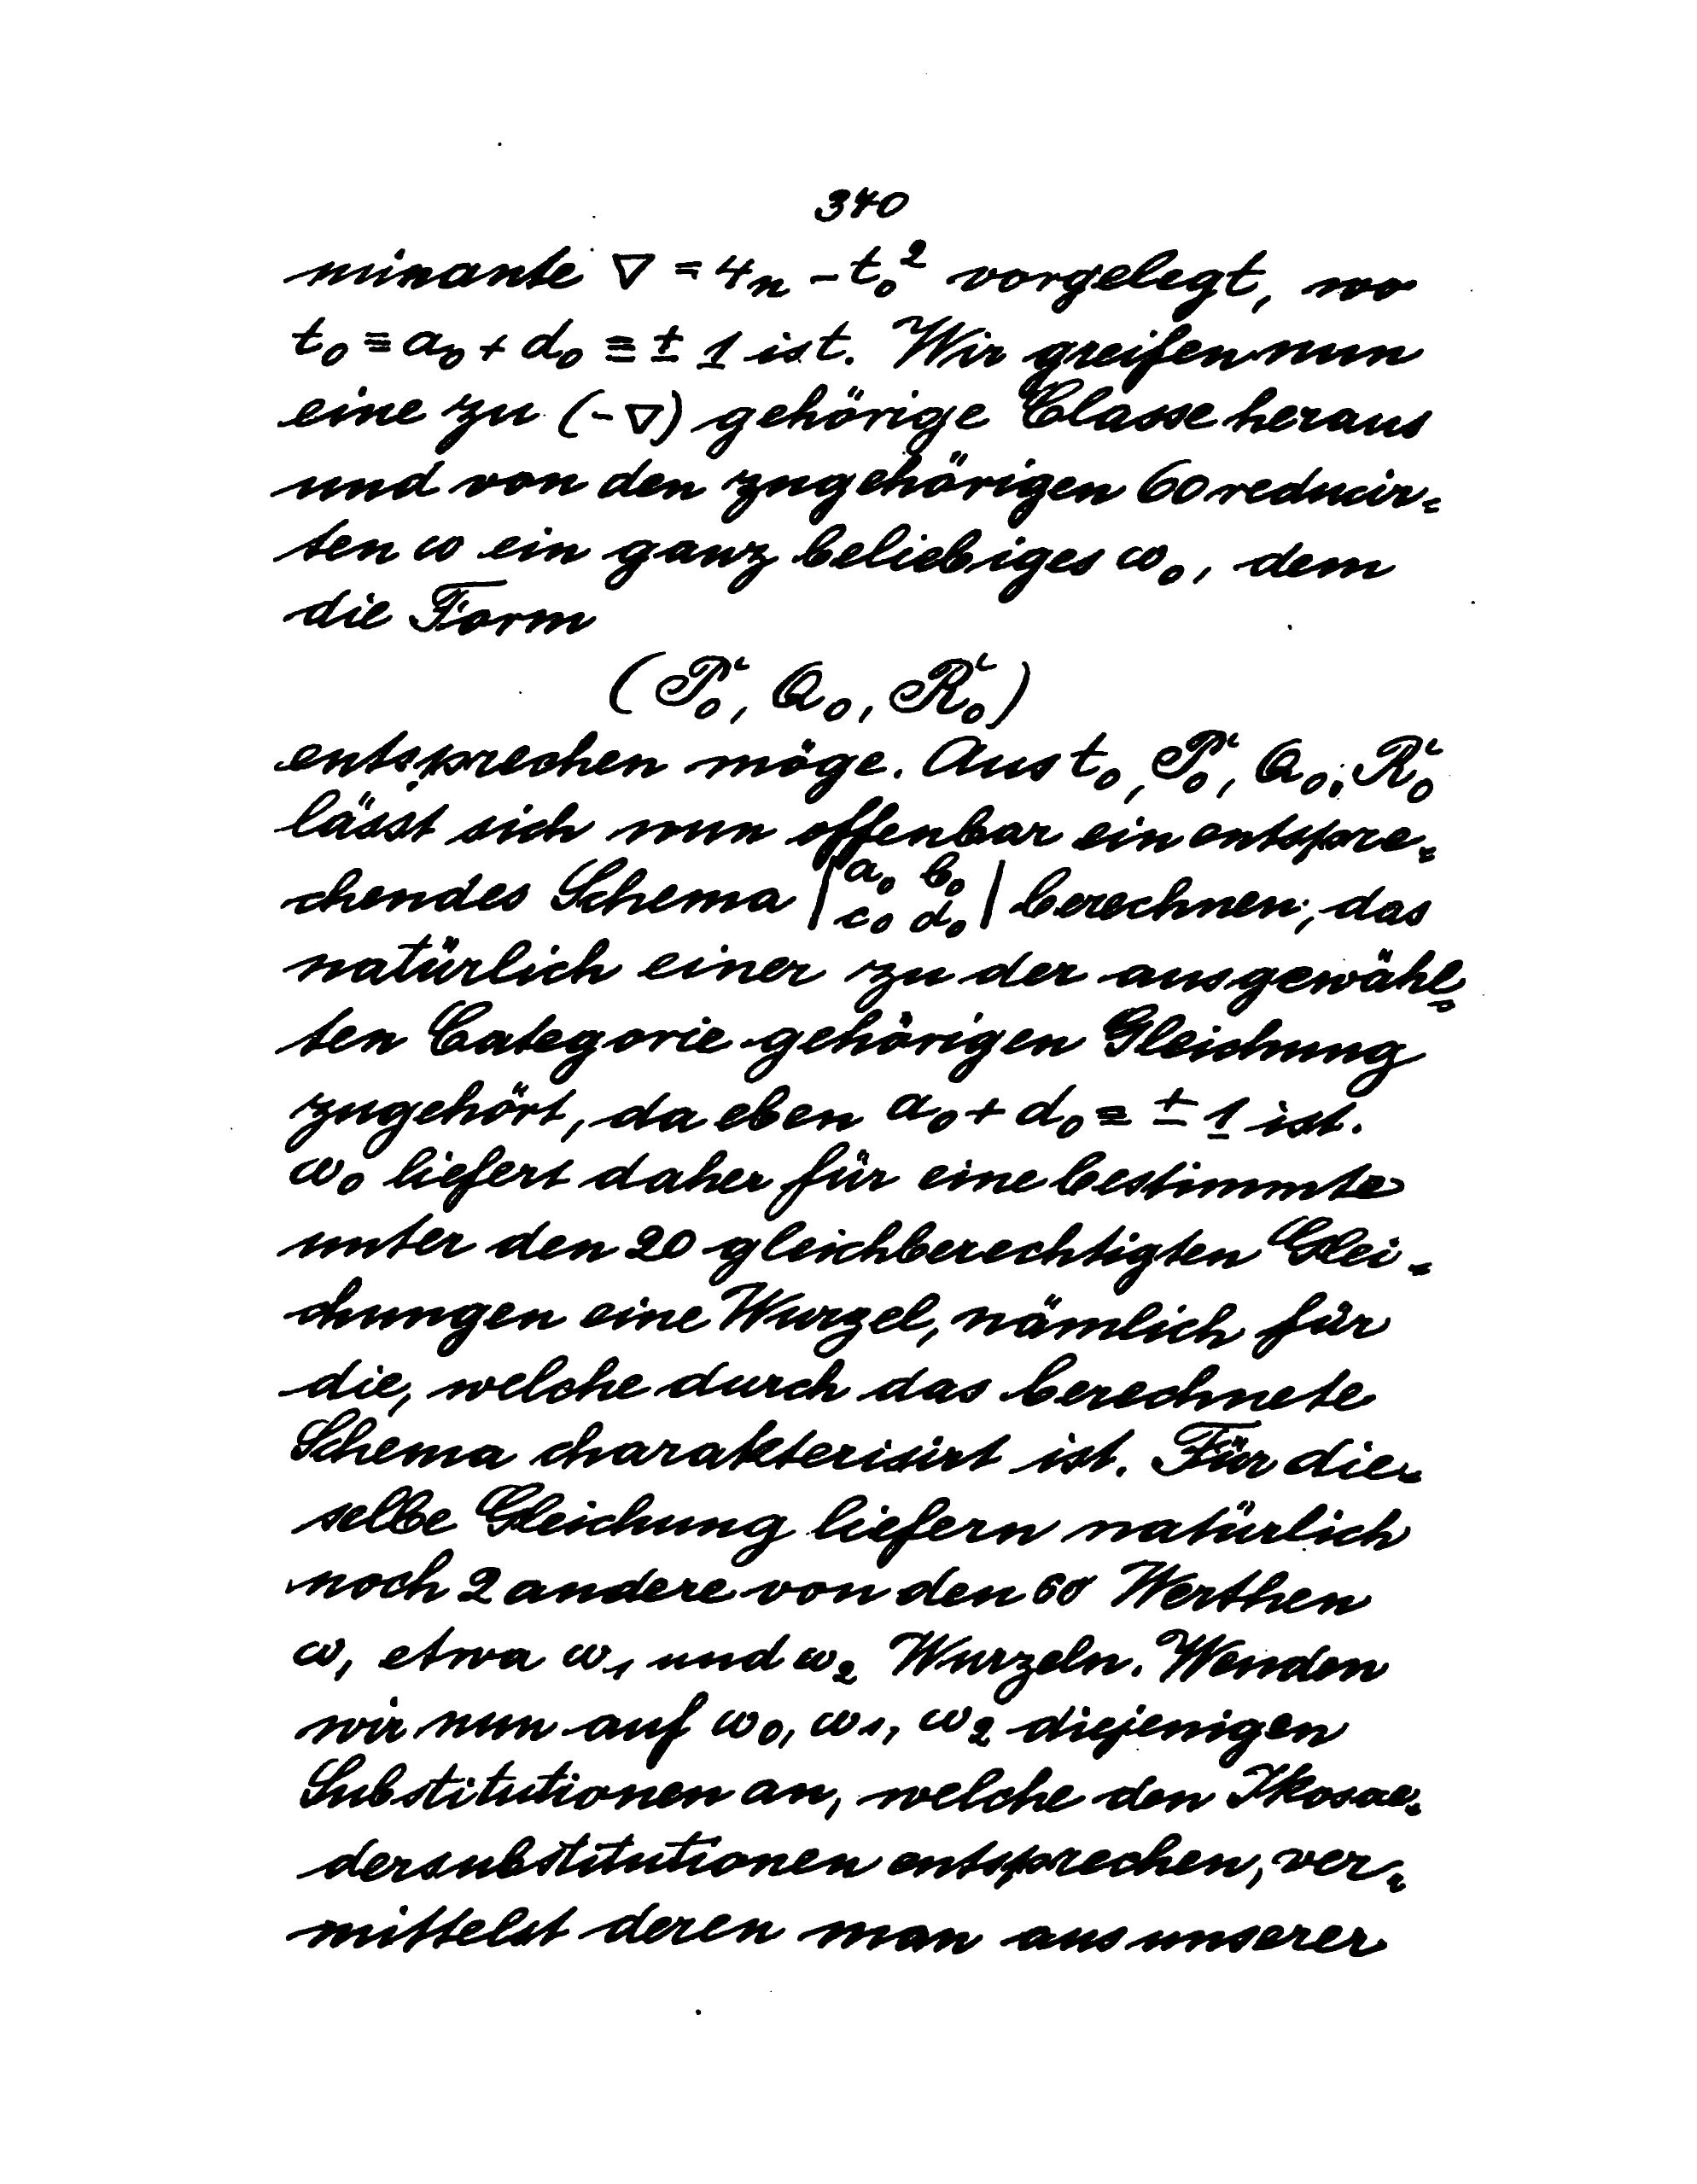 340
minante ∇ = 4n - t₀² vorgelegt, wo
t₀ ≡ a₀ + d₀ ≡ ± 1 ist. Wir greifen nun
eine zu (-∇) gehörige Classe heraus
und von den zugehörigen 60 reducir-
ten ω ein ganz beliebiges ω₀, dem
die Form
(P₀', Q₀, R₀')
entsprechen möge. Aus t₀, P₀', Q₀, R₀'
lässt sich nun offenbar ein entspre-
chendes Schema |a₀ b₀ c₀ d₀| berechnen, das
natürlich einer zu der ausgewähl-
ten Categorie gehörigen Gleichung
zugehört, da eben a₀ + d₀ ≡ ± 1 ist.
ω₀ liefert daher für eine bestimmte
unter den 20 gleichberechtigten Glei-
chungen eine Wurzel, nämlich für
die, welche durch das berechnete
Schema charakterisirt ist. Für die-
selbe Gleichung liefern natürlich
noch 2 andere von den 60 Werthen
ω, etwa ω₁ und ω₂ Wurzeln. Wenden
wir nun auf ω₀, ω₁, ω₂ diejenigen
Substitutionen an, welche den Ikosae-
dersubstitutionen entsprechen, ver-
mittelst deren man aus unserer